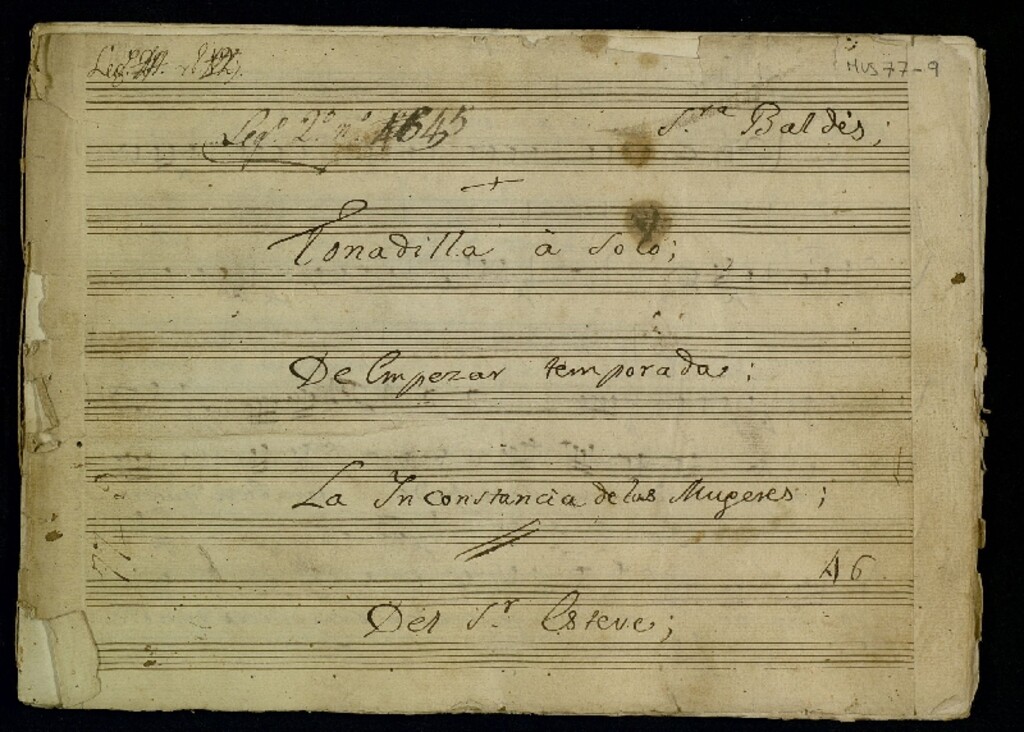 Leg.º
MUS 77-9
Leg.º 2.º n.º 1645
S.ra Baldés;
Tonadilla à Solo;
De Empezar temporada;
La Inconstancia de las Mugeres;
46
Del S.r Esteve;